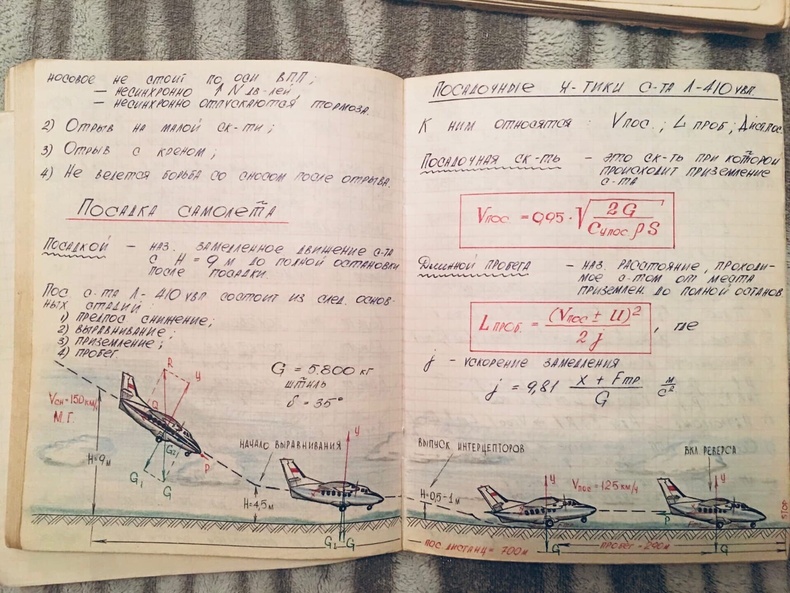 носовое не стоит по оси ВПП;
– несинхронно ↑ N дв-лей,
– несинхронно отпускаются тормоза.
2) Отрыв на малой ск-ти;
3) Отрыв с креном;
4) Не ведется борьба со сносом после отрыва.
Посадка самолета
Посадкой – наз. замедленное движение с-та
с H = 9 м до полной остановки
после посадки.
Пос с-та Л-410 увп состоит из след. основ-
ных стадий:
1) предпос снижение;
2) выравнивание;
3) приземление;
4) пробег
G = 5.800 кг
штиль
δ = 35°
R
У
Q
Vсн = 150 км/ч
М.Г.
H = 9м
G₁
G
P
начало выравнивания
H = 4,5 м
У
G
Посадочные х-тики с-та Л-410 увп
К ним относятся: Vпос.; L проб.;
Посадочная ск-ть – это ск-ть при которой
происходит приземление
с-та
Vпос = 0,95 · √ 2G / Cупос ρ S
Длинной пробега – наз. расстояние, проходи-
мое с-том от места
приземлен. до полной останов
L проб. = (Vпос ± U)² / 2j , где
j – ускорение замедления
j = 9,81 X + Fтр / G м/с²
выпуск интерцепторов
вкл реверса
H = 0,5 – 1 м
У
Vпос = 125 км/ч
У
P
G
G
пос. дистанц = 700м
пробег = 290м